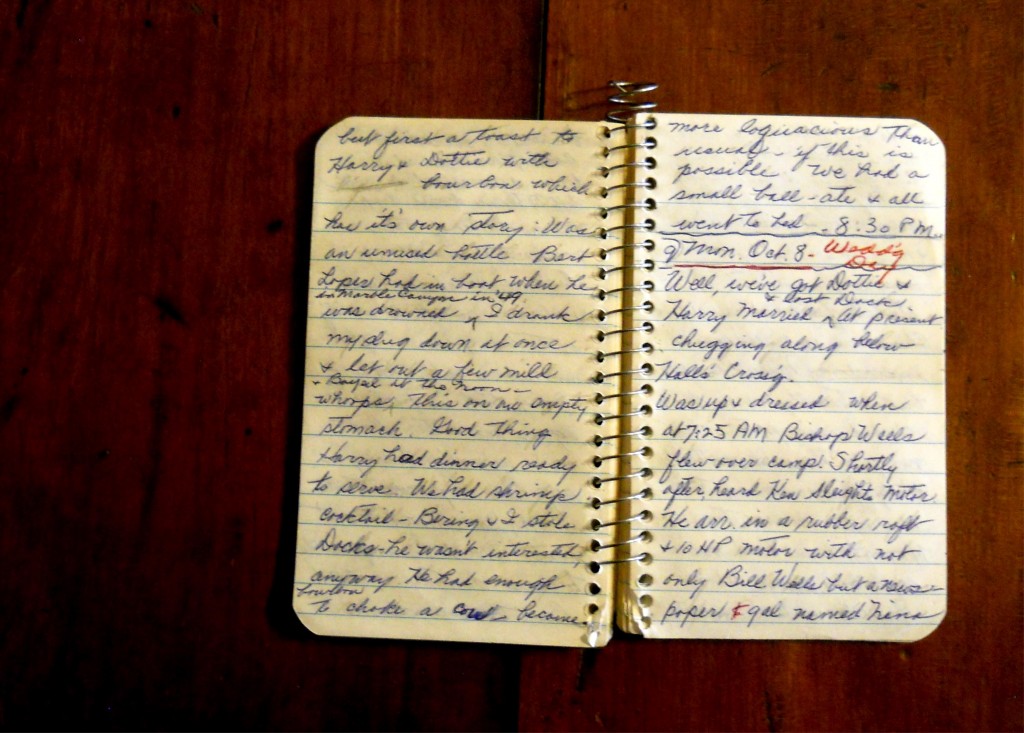 but first a toast to
Harry & Dottie with
bourbon which
has it's own story: Was
an unused bottle Bert
Loper had in boat when he
in Marble Canyon in '49
was drowned ^ I drank
my slug down at once
& let out a few mild
& Bayed at the moon -
whoops. This on an empty
stomach. Good thing
Harry had dinner ready
to serve. We had shrimp
cocktail - Bering & I stole
Docks - he wasn't interested,
anyway He had enough
bourbon
to choke a cow - became
more loquacious than
usual - if this is
possible. We had a
small ball - ate & all
went to bed - 8:30 P.M.
9) Mon. Oct. 8 - Wedd'g
Day
Well, we've got Dottie &
& lost Dock
Harry Married ^ At present
chugging along below
Hall's Cross'g.
Was up & dressed when
at 7:25 AM Bishop Wells
flew over camp. Shortly
after heard Ken Sleights Motor
He arr. in a rubber raft
+ 10 HP motor with not
only Bill Wells but a news-
paper gal named Nina